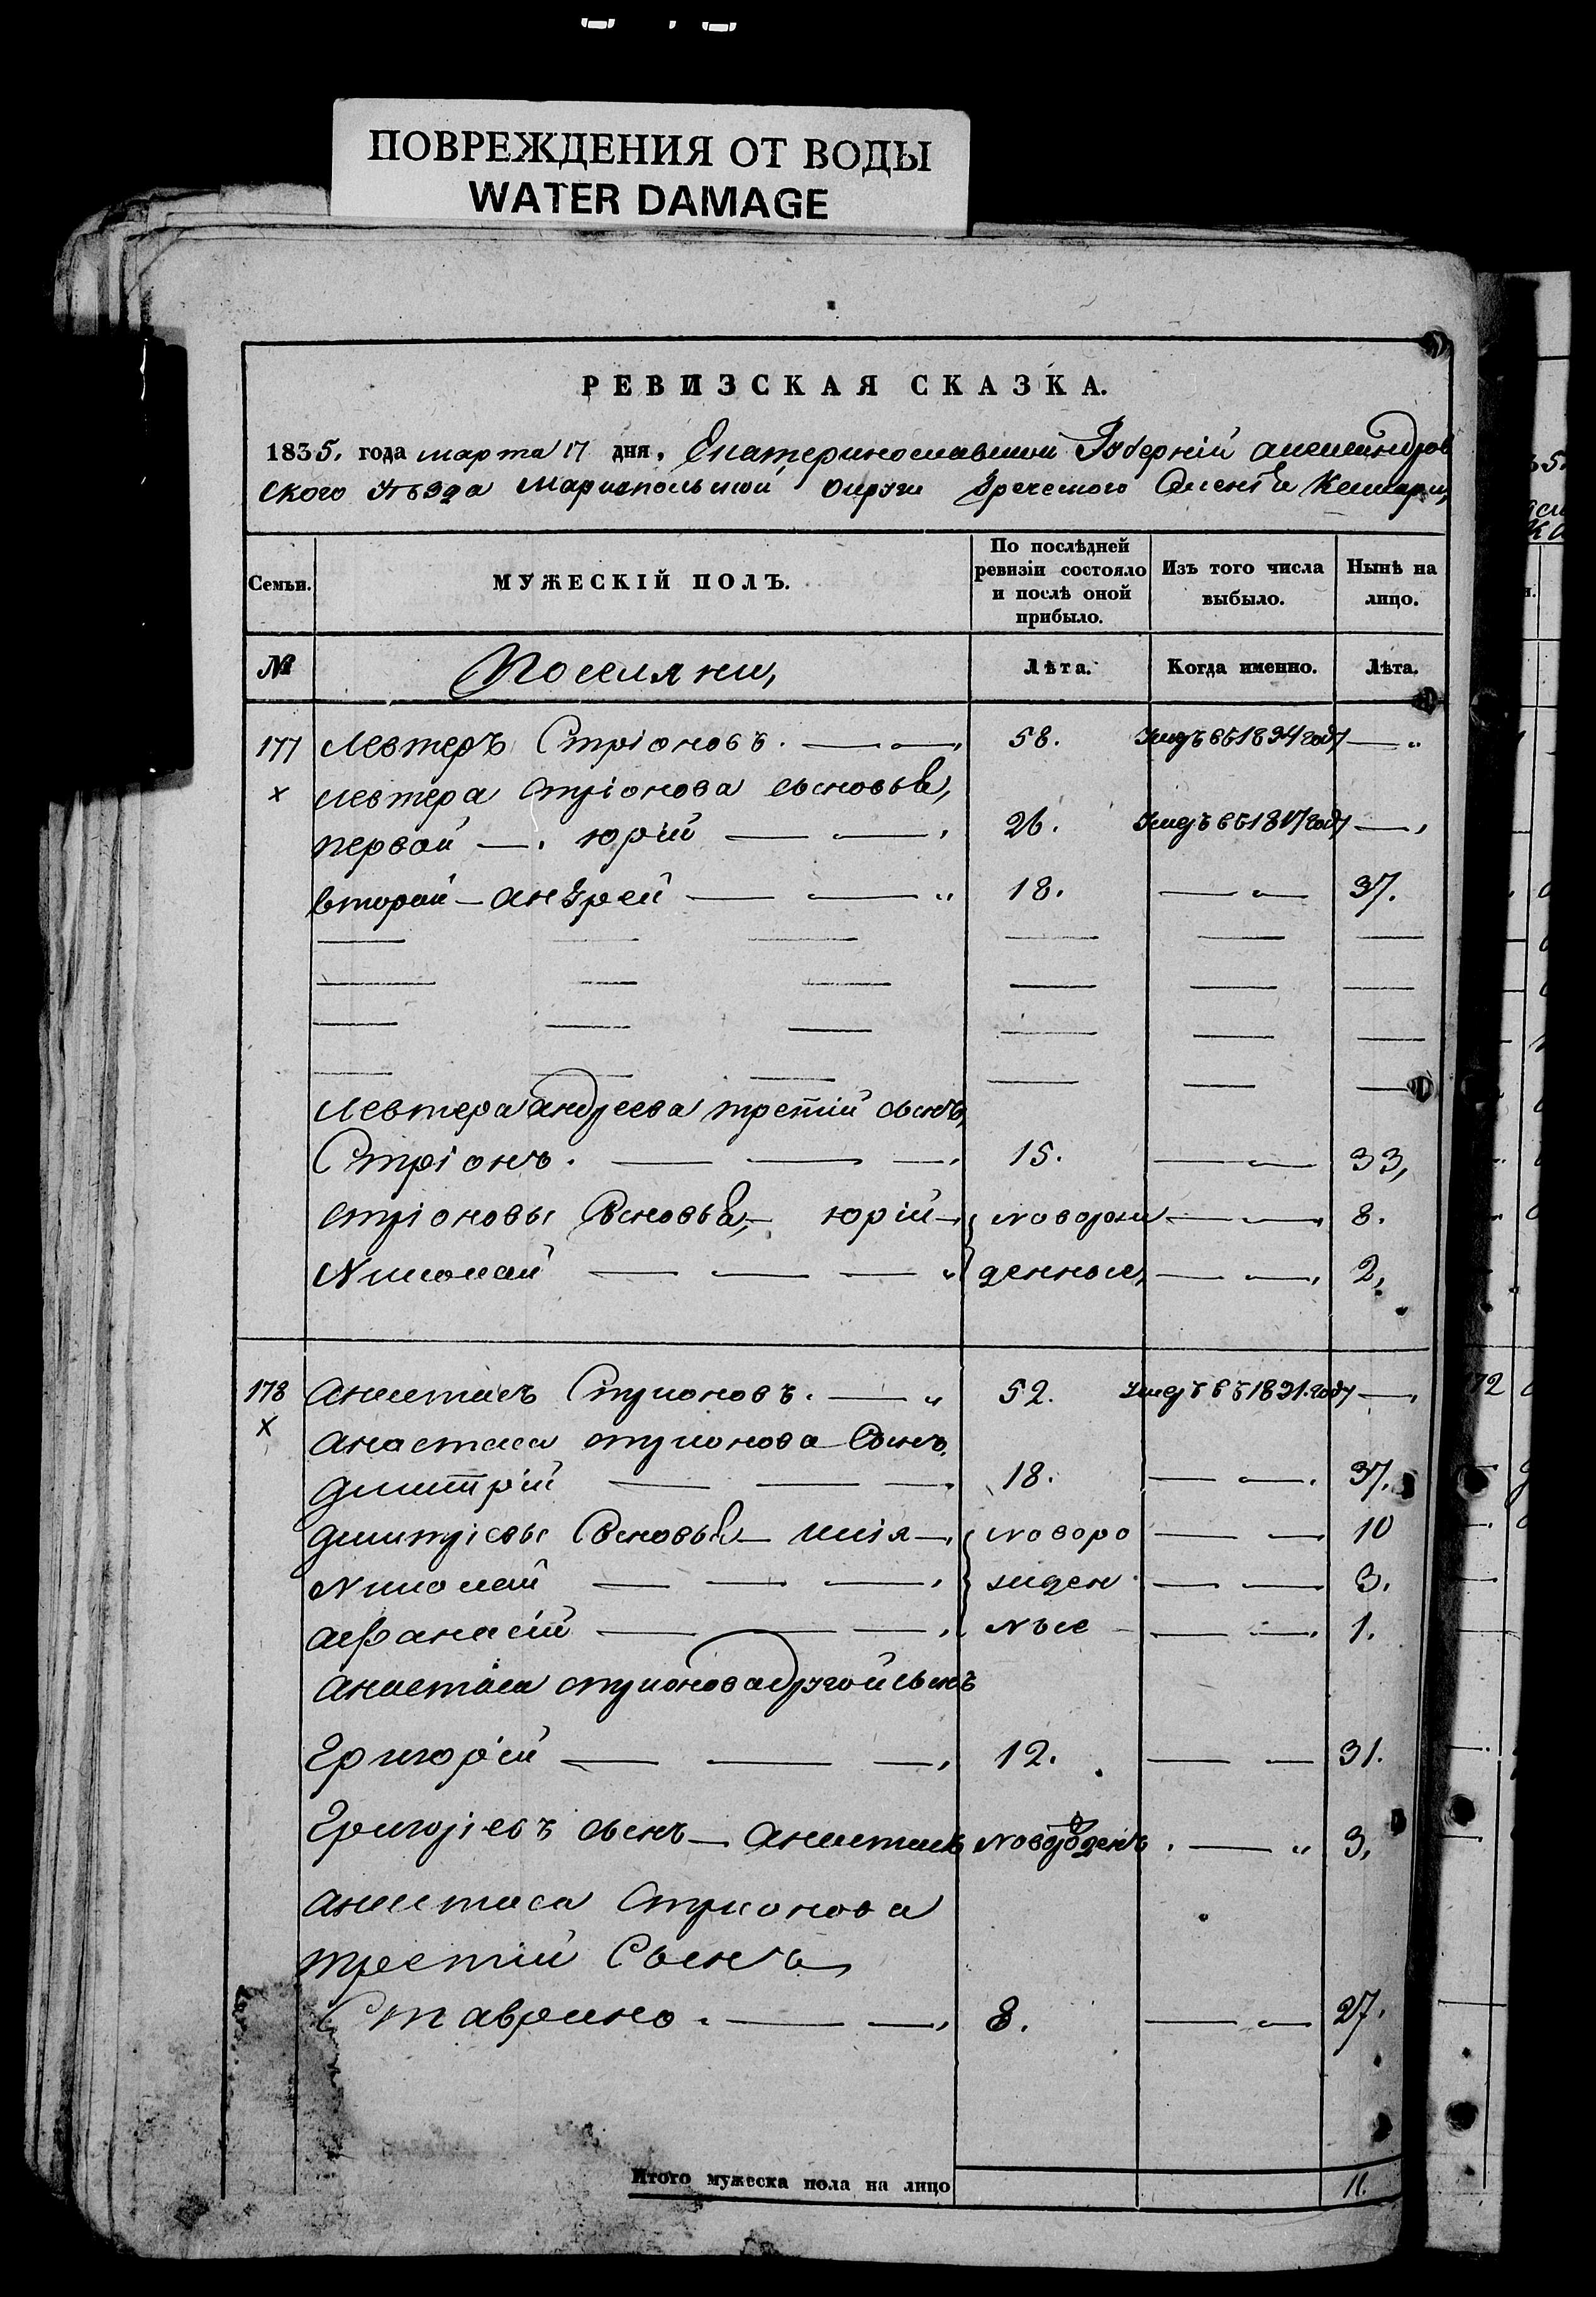 ПОВРЕЖДЕНИЯ ОТ ВОДЫ
WATER DAMAGE
РЕВИЗСКАЯ СКАЗКА.
1835. года марта 17 дня. Екатеринославской Губерніи александров
ского Уѣзда Мариопольской округи Греческого Селенія
Семьи. МУЖЕСКІЙ ПОЛЪ. По послѣдней ревизіи состояло и послѣ оной прибыло. Изъ того числа выбыло. Нынѣ на лицо.
№ Поселяни, Лѣта. Когда именно. Лѣта.
177 Левтеръ Стріоновъ. 58. Умеръ въ 1834 году
х Левтера стріонова сыновья,
первой юрій 26. Умеръ въ 1817 году
второй андрей 18. 37.
Левтера андреева третій сынъ,
Стріонъ. 15. 33,
стріоновы Сыновья, юрій новорож 8.
Николай денные, 2,
178 анастасъ Стрионовъ. 52. Умеръ въ 1831. году
х анастаса стрионова Сынъ,
дмитрій 18. 37.
дмитріевы Сыновья илія новоро 10
Николай жден 3.
афанасій ные 1.
анастаса стрионова другой сынъ
григорій 12. 31.
григоріевъ сынъ анастасъ новорожденъ 3,
анастаса стрионова
третій Сынъ
Ставрино. 8. 27.
Итого мужеска пола на лицо 11.